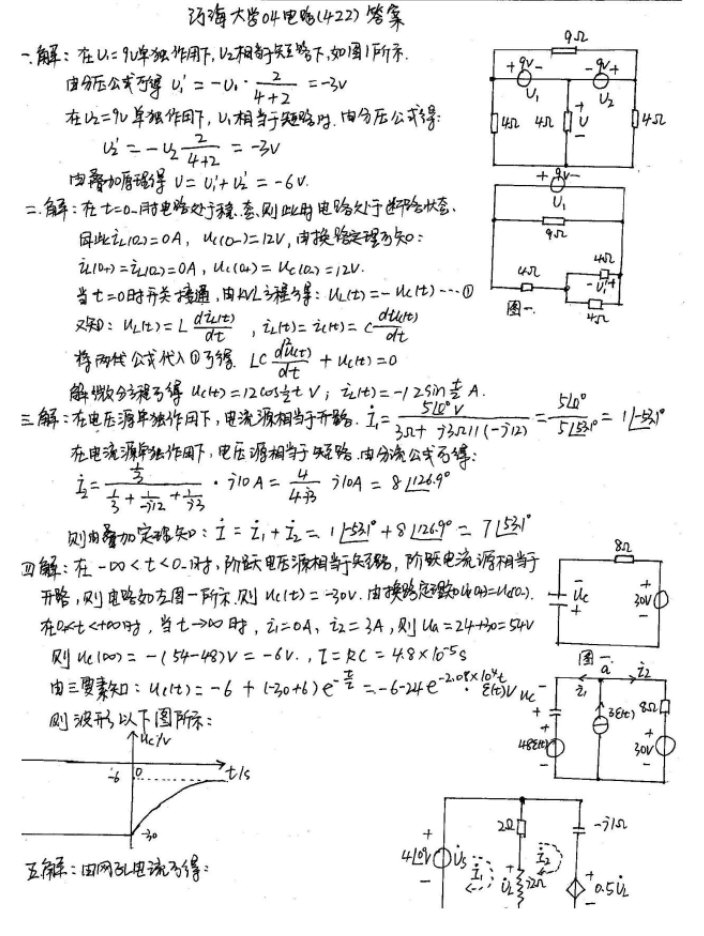 河海大学04电路(422)答案
一.解：在U₁=9V单独作用下,U₂相当于短路下,如图1所示.
由分压公式可得 U₁' = -U₁· 2/(4+2) = -3V
在U₂=9V单独作用下,U₁相当于短路时.由分压公式得:
U₂' = -U₂ 2/(4+2) = -3V
由叠加原理得 U=U₁'+U₂' = -6V.
二.解：在t=0₋时电路处于稳态,则此时电路处于断路状态,
因此i_L(0₋)=0A, u_c(0₋)=12V,由换路定理可知:
i_L(0₊)=i_L(0₋)=0A, u_c(0₊)=u_c(0₋)=12V.
当t=0时开关接通,由KVL方程可得: u_L(t)=-u_c(t)···①
又知: u_L(t)=L di_L(t)/dt , i_L(t)=i_c(t)=C du_c(t)/dt
将两代公式代入①可得. LC d²u_c(t)/dt + u_c(t)=0
解微分方程可得 u_c(t)=12cos½t V; i_L(t)=-12sin t/2 A.
三.解：在电压源单独作用下,电流源相当于开路. İ₁= 5∠0°V/(3Ω+j3Ω//(-j12)) = 5∠0°/5∠53.1° = 1∠-53.1°
在电流源单独作用下,电压源相当于短路.由分流公式可得:
İ₂= (1/3)/(1/3+1/-j12+1/j3) · j10A = 4/(4-j3) j10A = 8∠126.9°
则由叠加定理知: İ=İ₁+İ₂=1∠-53.1°+8∠126.9°=7∠53.1°
四.解：在-∞<t<0₋时,阶跃电压源相当于短路,阶跃电流源相当于
开路,则电路如左图一所示.则u_c(t)=-30V.由换路定理知u_c(0₊)=u_c(0₋).
在0₊<t<+∞时,当t→∞时, i₁=0A, i₂=3A,则Ua=24+30=54V
则u_c(∞)=-(54-48)V=-6V., τ=RC=4.8×10⁻⁵s
由三要素知: u_c(t)=-6+(-30+6)e^(-t/τ)=-6-24e^(-2.08×10⁴t)·ε(t)V
则波形以下图所示:
u_c/V
-6
0
t/s
-30
五.解：由网孔电流可得:
9Ω
+ 9V -
- 9V +
U₁
U₂
4Ω
4Ω
+
U
-
4Ω
+ 9V -
U₁
9Ω
4Ω
4Ω
- U₁' +
4Ω
图一.
8Ω
-
u_c
+
+
30V
-
图一
i₁
a
i₂
u_c
-
+
+
48ε(t)
-
3ε(t)
8Ω
+
30V
-
+
4∠0°V
-
U̇s
İ₁
2Ω
U̇_L
j2Ω
İ₂
-j1Ω
+
0.5U̇_L
-